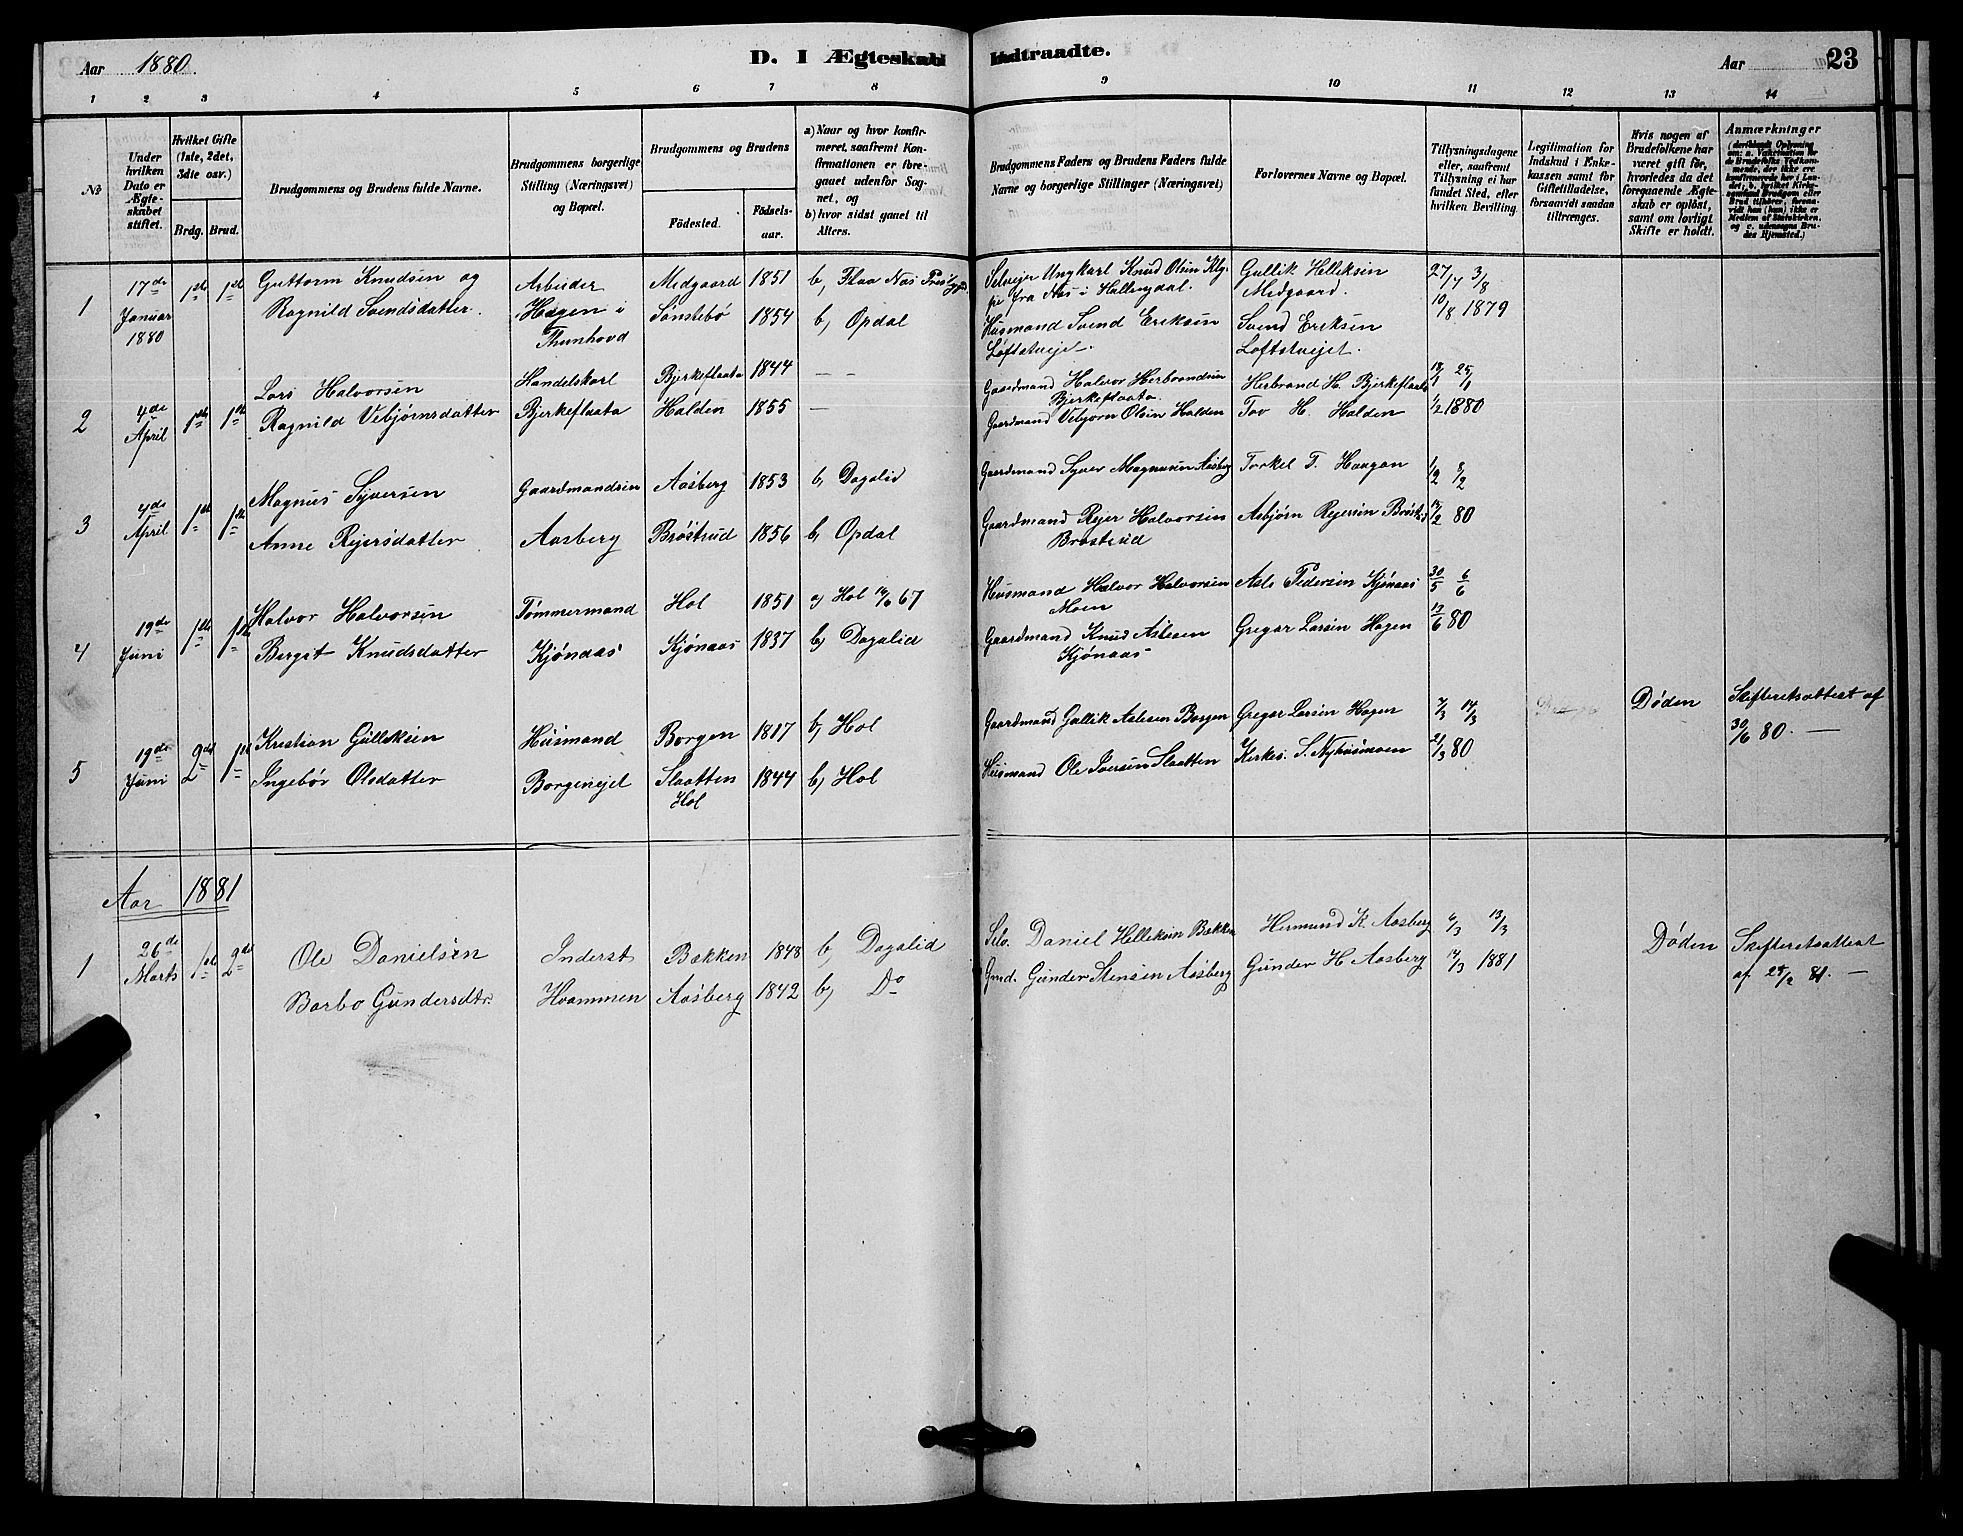 Aar 1880. D. I Ægteskab Indtraadte. Aar 23
1 2 3 4 5 6 7 8 9 10 11 12 13 14
№
Under hvilken Dato er Ægteskabet stiftet.
Hvilket Gifte (1ste, 2det, 3die osv.)
Brdg. Brud.
Brudgommens og Brudens fulde Navne.
Brudgommens borgerlige Stilling (Næringsvei) og Bopæl.
Brudgommens og Brudens
Födested. Födselsaar.
a) Naar og hvor konfirmeret, saafremt Konfirmationen er foregaaet udenfor Sognet, og
b) hvor sidst gaaet til Alters.
Brudgommens Faders og Brudens Faders fulde Navne og borgerlige Stillinger (Næringsvei)
Forlovernes Navne og Bopæl.
Tillysningsdagene eller, saafremt Tillysning ei har fundet Sted, efter hvilken Bevilling.
Legitimation for Indskud i Enkekassen samt for Giftetilladelse, forsaavidt saadan tiltrænges.
Hvis nogen af Brudefolkene har været gift för, hvorledes da det foregaaende Ægteskab er oplöst, samt om lovligt Skifte er holdt.
Anmærkninger
1 17de Januar 1880 1ste 1ste
Guttorm Knudsen og Arbeider Medgaard 1851 b, Flaa Nas
Ragnild Svendsdatter. Haagen i Thunhovd Sönstebö 1854 b, Opdal
Selveier Ungkarl Knud Olsen
fra Nas i Hallingdal.
Husmand Svend Eriksen
Löftsteiet.
Gullik Helliksen
Medgaard.
Svend Eriksen
Loftsteiet.
27/7 3/8
10/8 1879
2 4de April 1ste 1ste
Lars Halvorsen Handelskarl Bjerkeflaata 1844 — —
Ragnild Vebjörnsdatter Bjerkeflaata Halden 1855 —
Gaardmand Halvor Herbrandsen
Bjerkeflaata.
Gaardmand Vebjørn Olsen Halden
Herbrand H. Bjerkeflaata
Tov H. Halden
18/1 25/1
1/2 1880
3 4de April 1ste 1ste
Magnus Syversen Gaardmandsön Aasberg 1853 b, Dagalid
Anne Reiersdatter Aasberg Bröstrud 1856 b, Opdal
Gaardmand Syver Magnusen Aasberg
Gaardmand Reier Halvorsen
Bröstrud
Torkel T. Haugan
Asbjörn Reiersen Bröst.
1/2 8/2
15/2 80
4 19de Juni 1ste 1ste
Halvor Halvorsen Tömmermand Hol 1851 a, Hol 67
Bergit Knudsdatter Kjönaas Kjönaas 1837 b, Dagalid
Husmand Halvor Halvorsen
Moen
Gaardmand Knud Aslesen
Kjönaas
Asle Pedersen Kjönaas
Gregar Larsen Hagen
30/5 6/6
13/6 80
5 19de Juni 2det 1ste
Kristian Gulleksen Husmand Borgen 1817 b, Hol
Ingebör Olsdatter Borgeneiet Slaatten Hol 1844 b, Hol
Gaardmand Gullik Aslesen Borgen
Husmand Ole Iversen Slaatten
Gregar Larsen Hagen
Kirkes. S. Nyhusmoen
7/3 14/3
21/3 80
Döden
Skifteretsattest af
30/6 80. —
Aar 1881
1 26de Marts 1ste 2det
Ole Danielsen Inderst Bakken 1848 b, Dagalid
Barbo Gundersdtr. Hvammen Aasberg 1842 b, Do
Selv. Daniel Helleksen Bakken
Gmd. Gunder Stensen Aasberg
Hermund K. Aasberg
Gunder H Aasberg
6/3 13/3
14/3 1881
Döden
Skifteretsattest
af 25/2 81. —